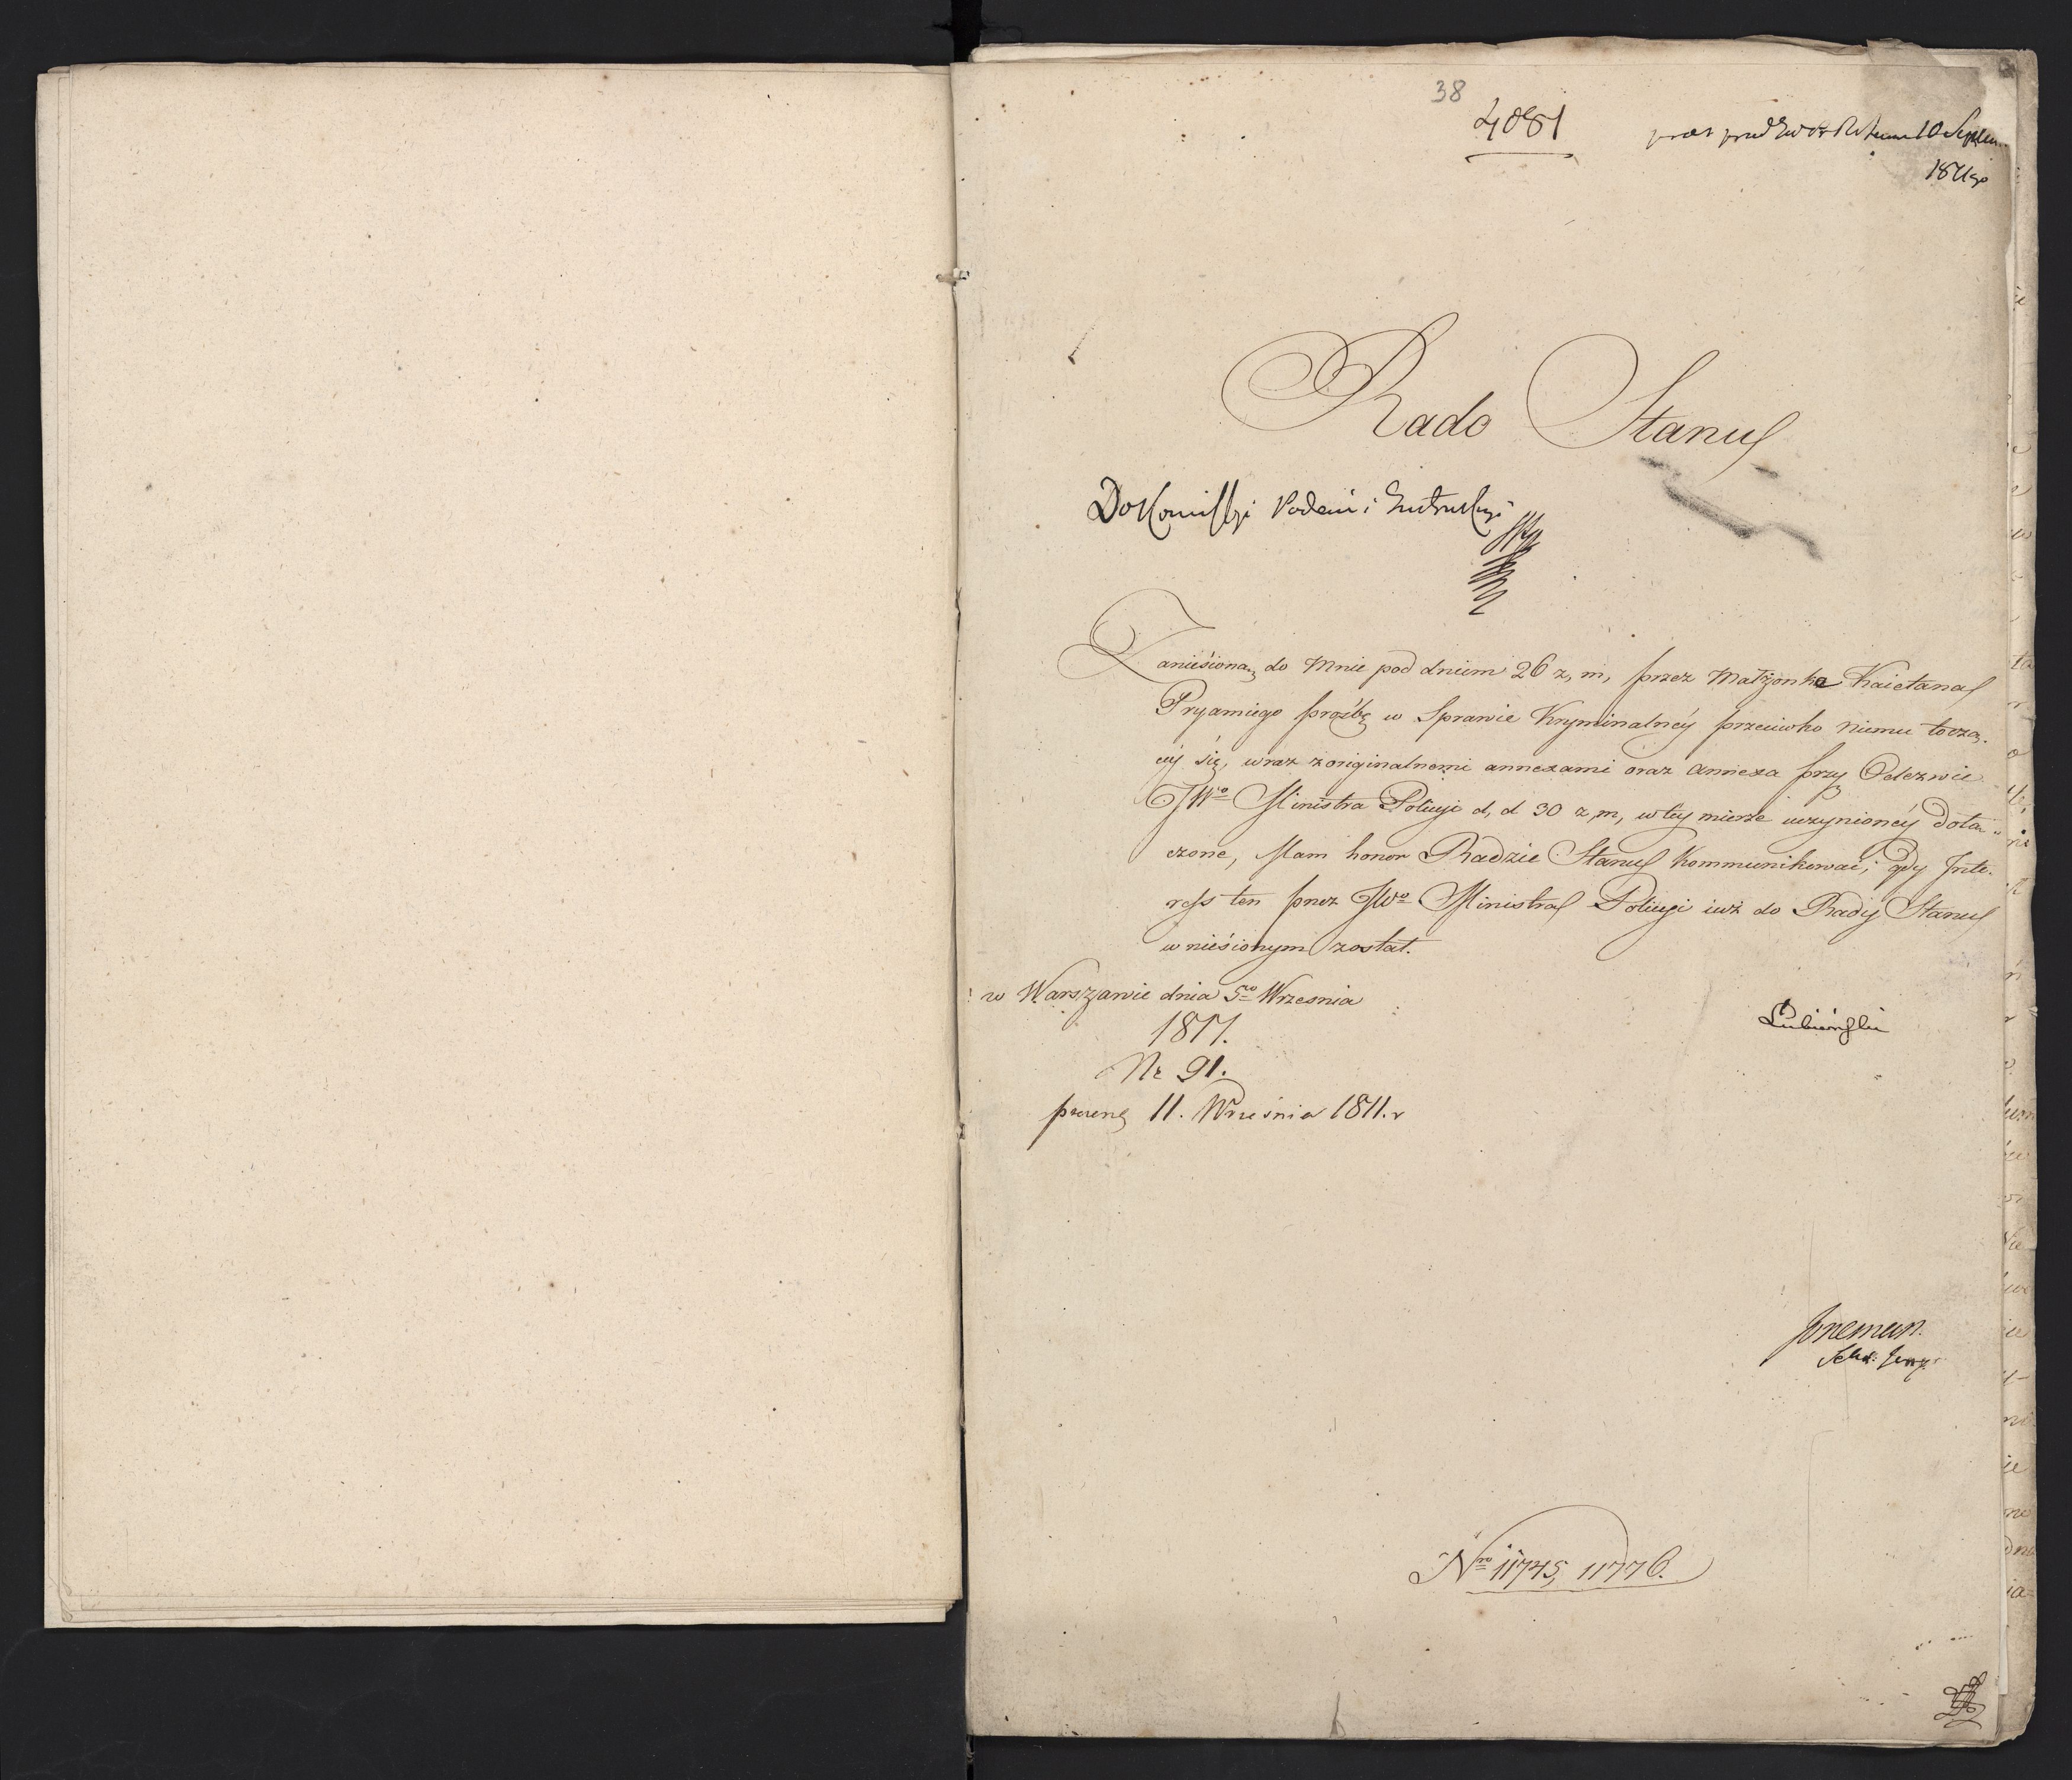 38
4081
10 Septem
1811go
Rado Stanu
Do Kommissyi Podań i Instrukcyi
Zaniesioną do Mnie pod dniem 26 z, m, przez Małżonkę Kaietana
Pryamiego proźbę w Sprawie Kryminalnéy przeciwko niemu toczą-
céy się, wraz z originalnemi annexami oraz annexa przy Odezwie
JWo Ministra Policyi d, d 30 z, m, w téy mierze uczynionéy dołą-
czone, Mam honor Radzie Stanu kommunikować, gdy Inte-
ress ten przez JWo Ministra Policyi iuż do Rady Stanu
wniesionym został.
w Warszawie dnia 5go Wrzesnia
1811.
Nr 91.
11. Wrzesnia 1811. r
Łubieński
Nro 11745, 11776.